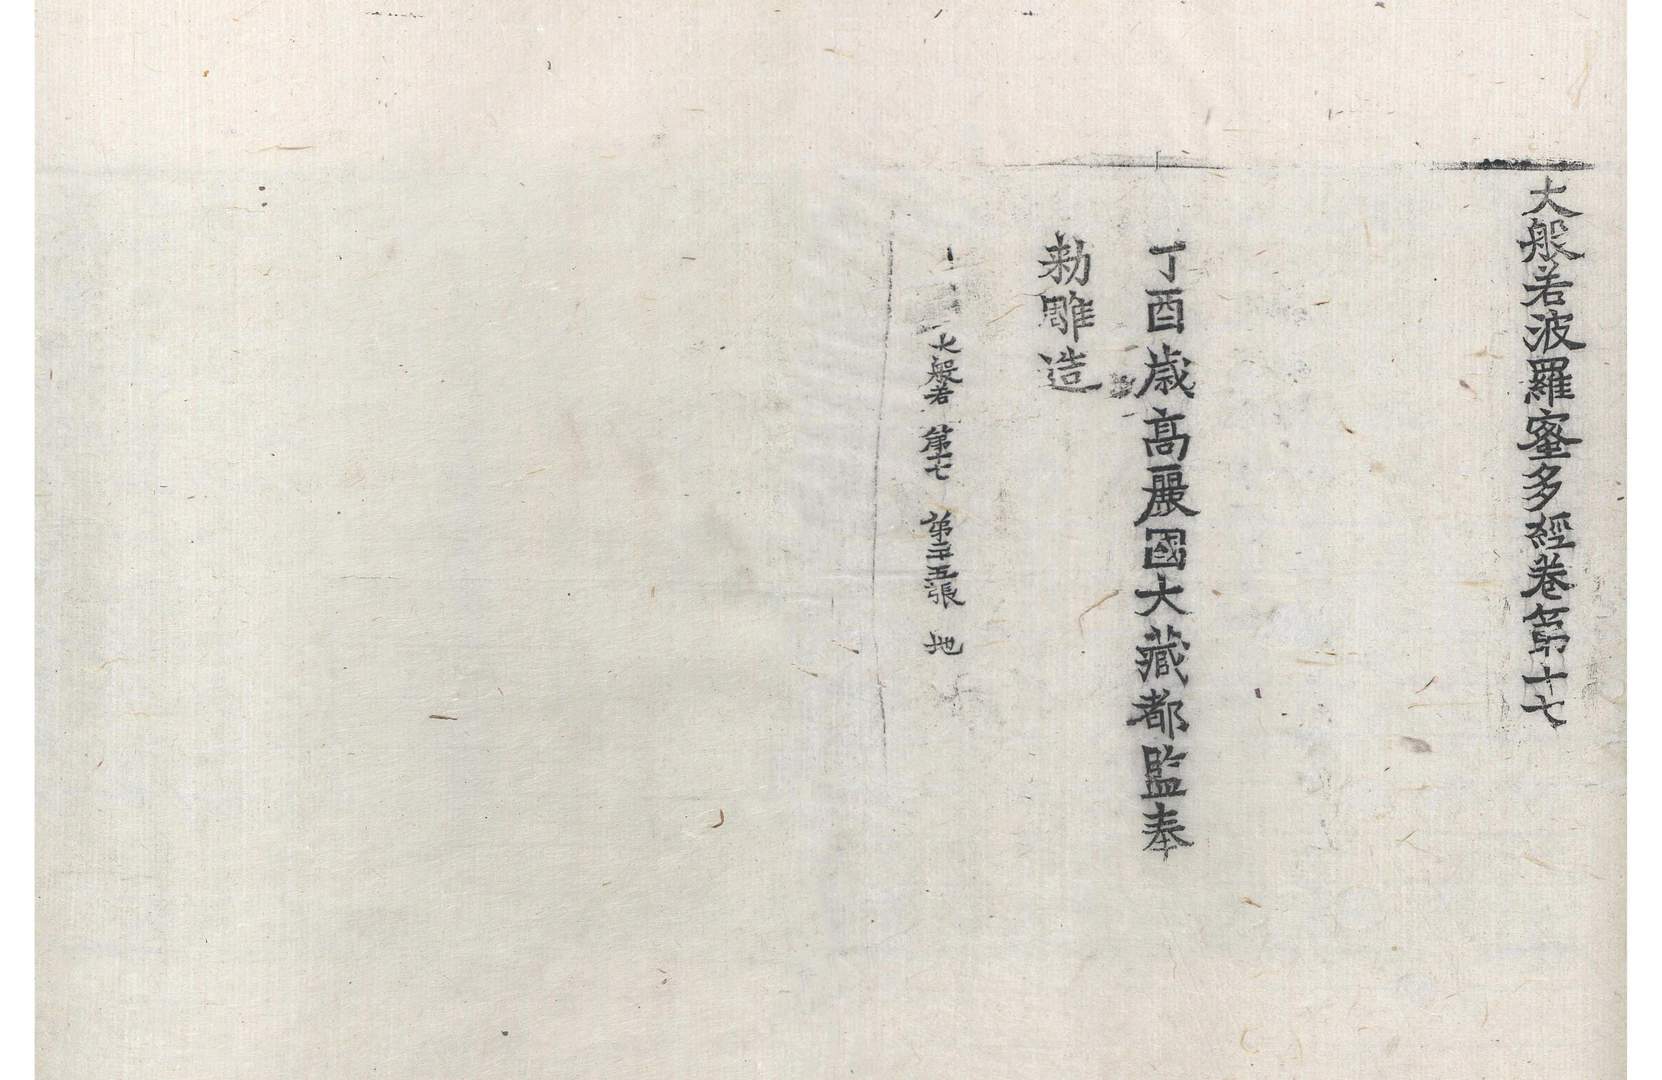 大般若波羅蜜多經卷第十七
丁酉歲高麗國大藏都監奉
勑雕造
大般若 第十七 第二十五張 地